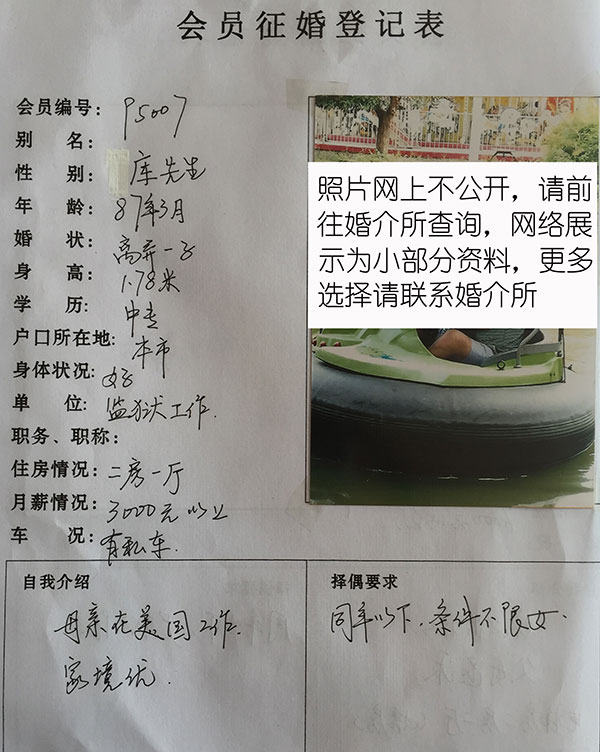 会员征婚登记表
会员编号: P5007
别 名:
性 别: 库先生
年 龄: 87年3月
婚 状: 离异一子
身 高: 1.78米
学 历: 中专
户口所在地: 本市
身体状况: 好
单 位: 监狱工作.
职务、职称:
住房情况: 二房一厅
月薪情况: 3000元以上
车 况: 有私车.
照片网上不公开，请前
往婚介所查询，网络展
示为小部分资料，更多
选择请联系婚介所
自我介绍
母亲在美国工作.
家境优.
择偶要求
同年以下.条件不限女.